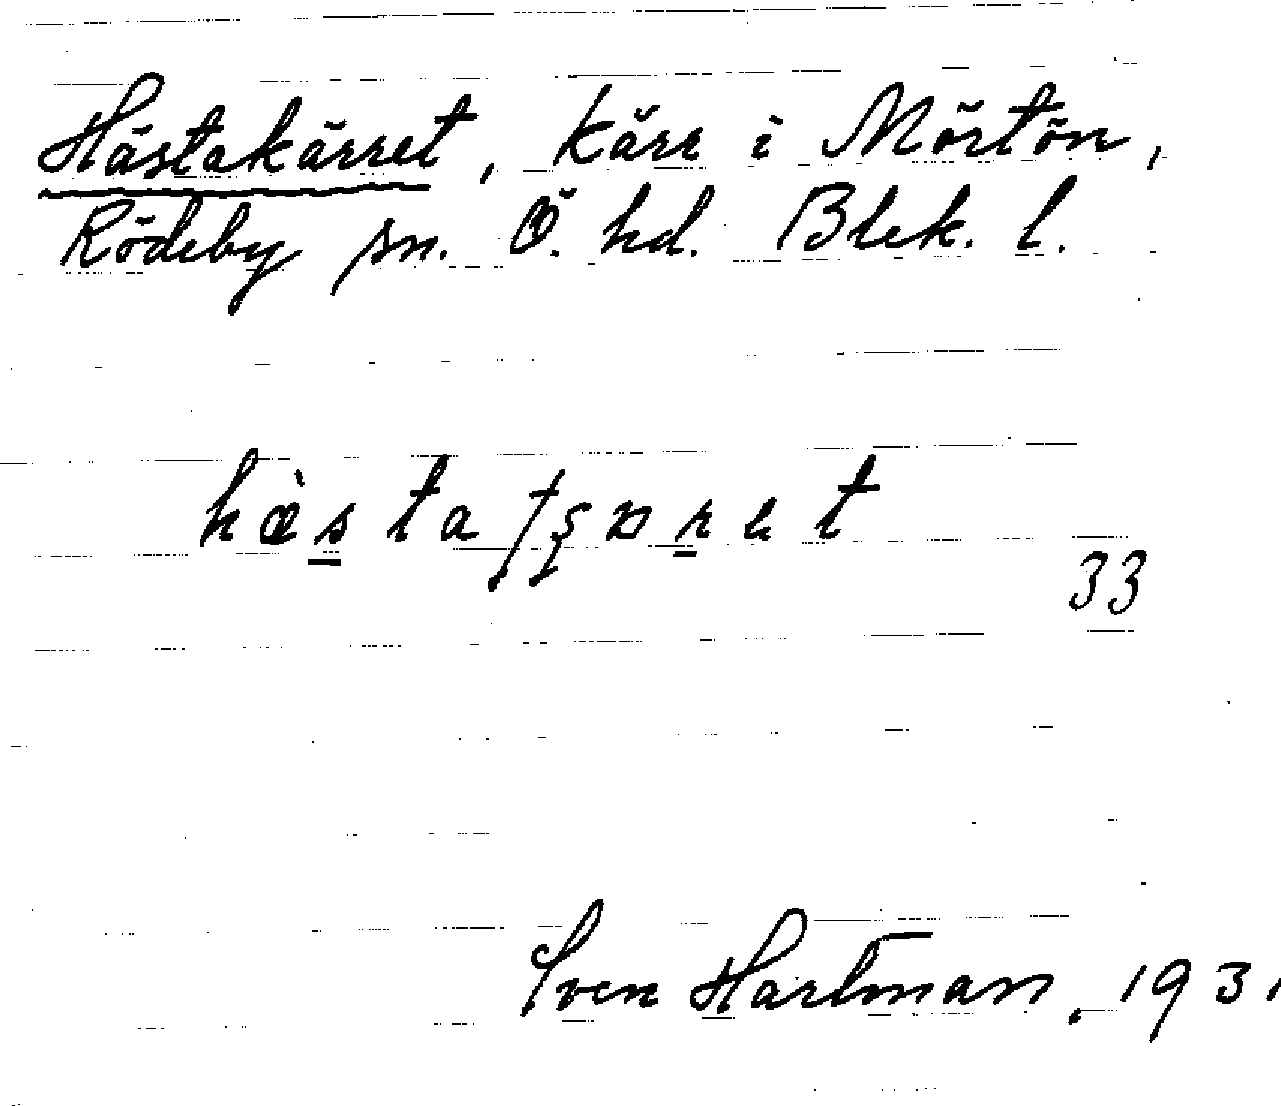 Hästakärret, kärr i Mörtön,
Rödeby sn. Ö. hd. Blek. l.
hæ̀s̲ta
33
Sven Hartman, 1931